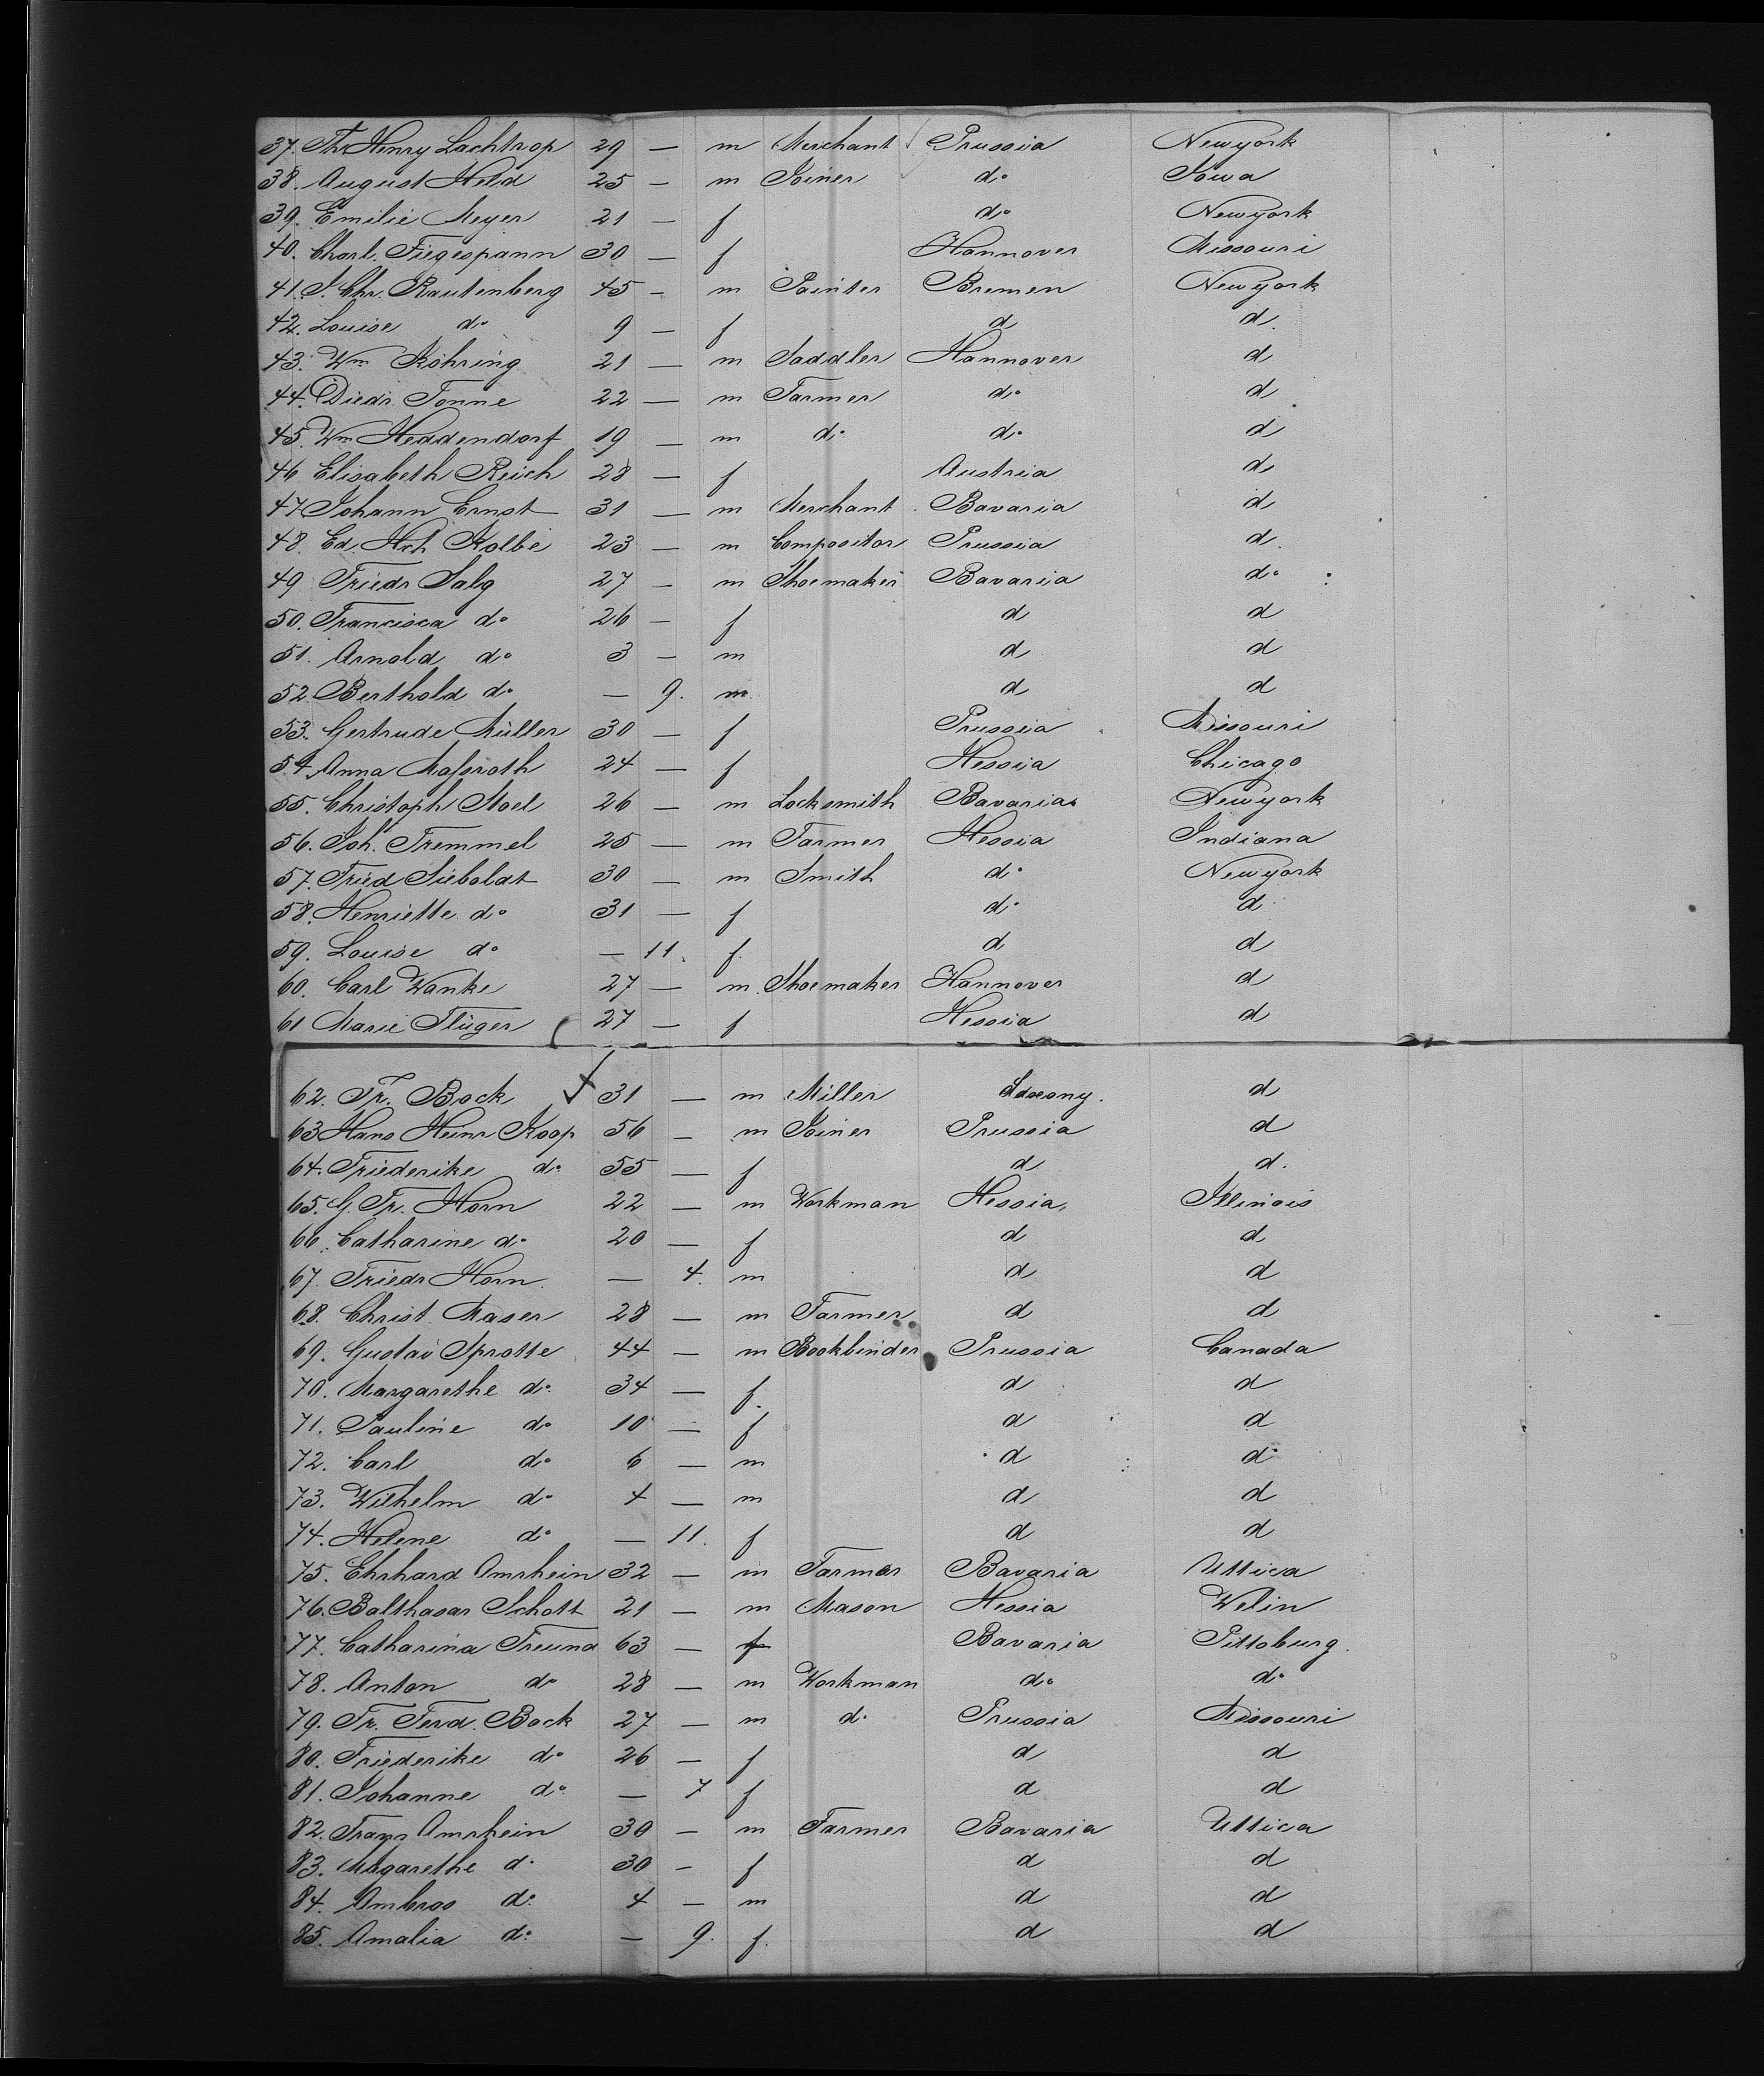 37. Th. Henry Lachtrop 29 — m Merchant Prussia Newyork
38. August Held 25 — m Joiner do Iowa
39. Emilie Meyer 21 — f do Newyork
40. Charl. Fiegespann 30 — f Hannover Missouri
41. J. Chr. Rautenberg 45 — m Painter Bremen Newyork
42. Louise do 9 — f d d.
43. Wm Röhring 21 — m Saddler Hannover d
44. Diedr. Tonne 22 — m Farmer do d
45. Wm Heddendorf 19 — m do do d
46 Elisabeth Reich 28 — f Austria d
47 Johann Ernst 31 — m Merchant Bavaria d
48. Ed. Hch Kolbe 23 — m Compositor Prussia d.
49 Friedr Salg 27 — m Shoemaker Bavaria do
50. Francisca do 26 — f d d
51. Arnold do 3 — m d d
52. Berthold do — 9. m d d
53. Gertrude Müller 30 — f Prussia Missouri
54 Anna Maßroth 24 — f Hessia Chicago
55. Christoph Noel 26 — m Locksmith Bavaria Newyork
56. Joh. Tremmel 25 — m Farmer Hessia Indiana
57. Fried Sieboldt 30 — m Smith do Newyork
58. Henriette do 31 — f do d
59. Louise do — 11. f. d d
60. Carl Wanke 27 — m Shoemaker Hannover d
61 Marie Flüger 27 — f Hessia d
62. Fr. Bock 31 — m Miller Saxony. d
63 Hans Heinr Koop 56 — m Joiner Prussia d
64. Friederike do 55 — f d d.
65. G. Fr. Horn 22 — m Workman Hessia, Illinois
66. Catharine do 20 — f d d
67. Friedr Horn. — 4. m d d
68. Christ. Maser 28 — m Farmer d d
69. Gustav Sprotte 44 — m Bookbinder Prussia Canada
70. Margarethe do 34 — f. d d
71. Pauline do 10 — f d d
72. Carl do 6 — m d d
73. Wilhelm do 4 — m d d
74. Helene do — 11. f d d
75. Ehrhard Amrhein 32 — m Farmer Bavaria Uttica
76. Balthasar Schott 21 — m Mason Hessia Welin
77. Catharina Freund 63 — f Bavaria Pittsburg.
78. Anton do 28 — m Workman do do
79. Fr. Ferd. Bock 27 — m do Prussia Missouri
80. Friederike do 26 — f d d
81. Johanne do — 7 f d d
82. Franz Amrhein 30 — m Farmer Bavaria Uttica
83. Magarethe d. 30 — f d d
84. Ambros do. 4 — m d d
85. Amalia do. — 9. f. d d